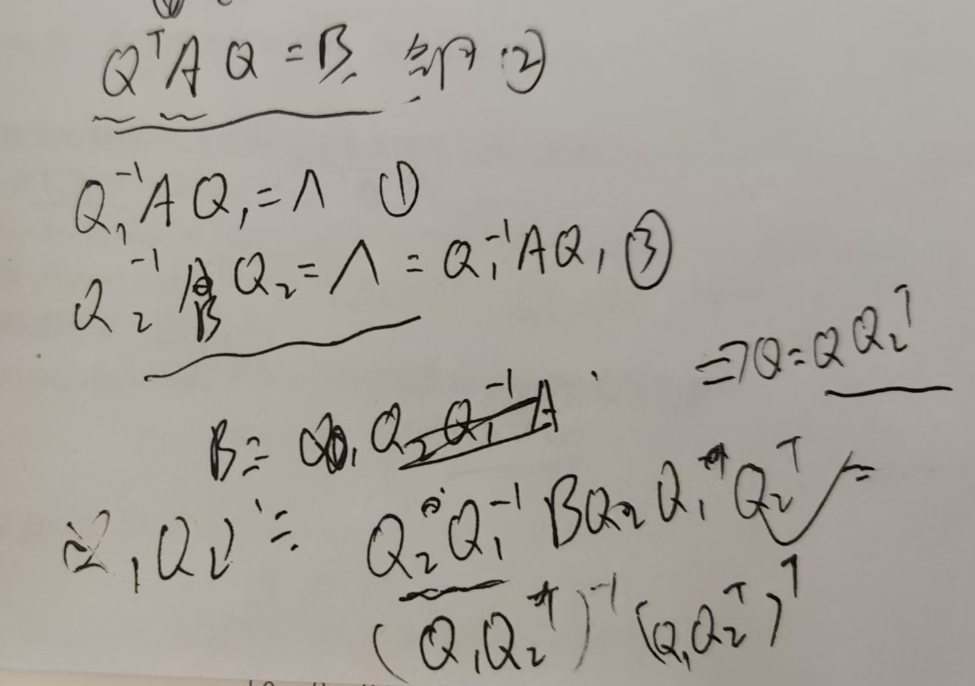 QᵀAQ = B ②
Q₁⁻¹AQ₁ = Λ ①
Q₂⁻¹BQ₂ = Λ = Q₁⁻¹AQ₁ ③
⇒ Q = QQ₂ᵀ
B = Q₂Q₁⁻¹A
Q₂Q₁⁻¹BQ₂Q₁Q₂ᵀ =
(Q₁Q₂ᵀ)⁻¹ (Q₁Q₂ᵀ)ᵀ